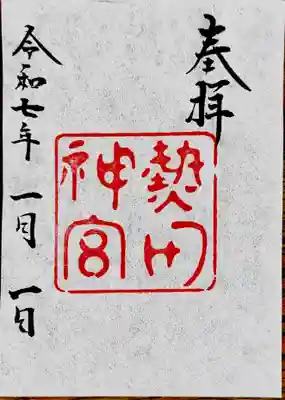 奉拝
熱田神宮
令和七年一月一日